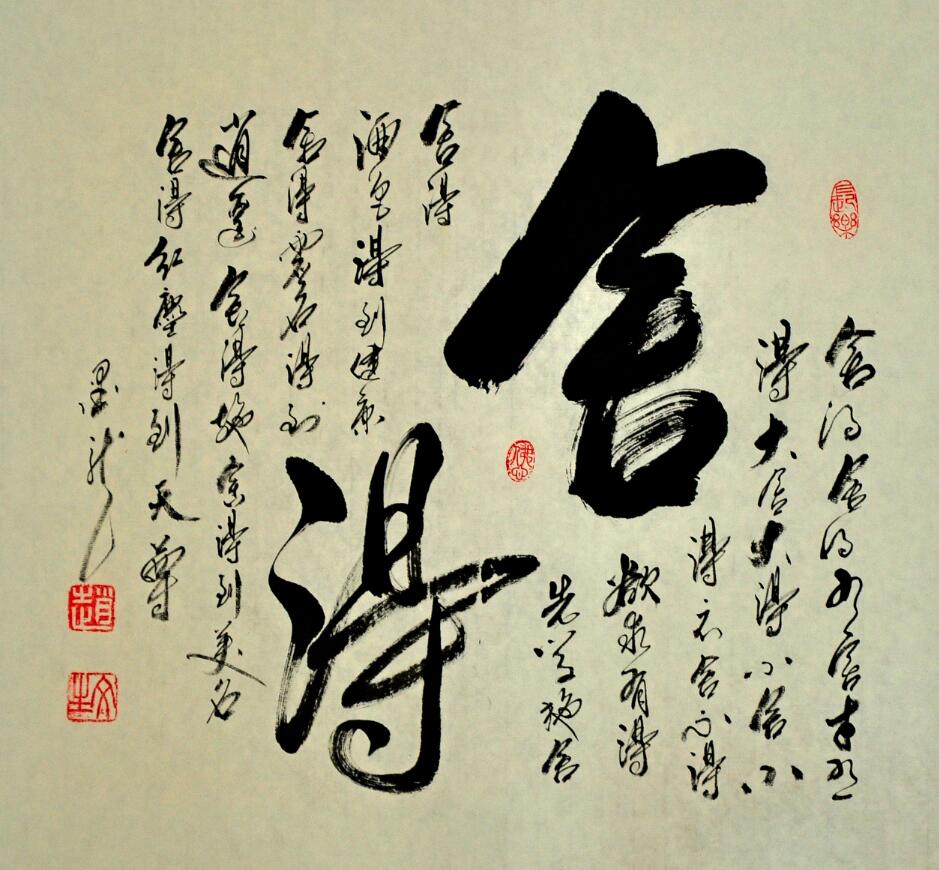 長樂
舍得舍得有舍才有
得大舍大得小舍小
得不舍不得
欲求有得
先学施舍
舍得
舍得
酒色得到健康
舍得虚名得到
逍遥舍得施舍得到美名
舍得红塵得到天尊
墨龙
趙